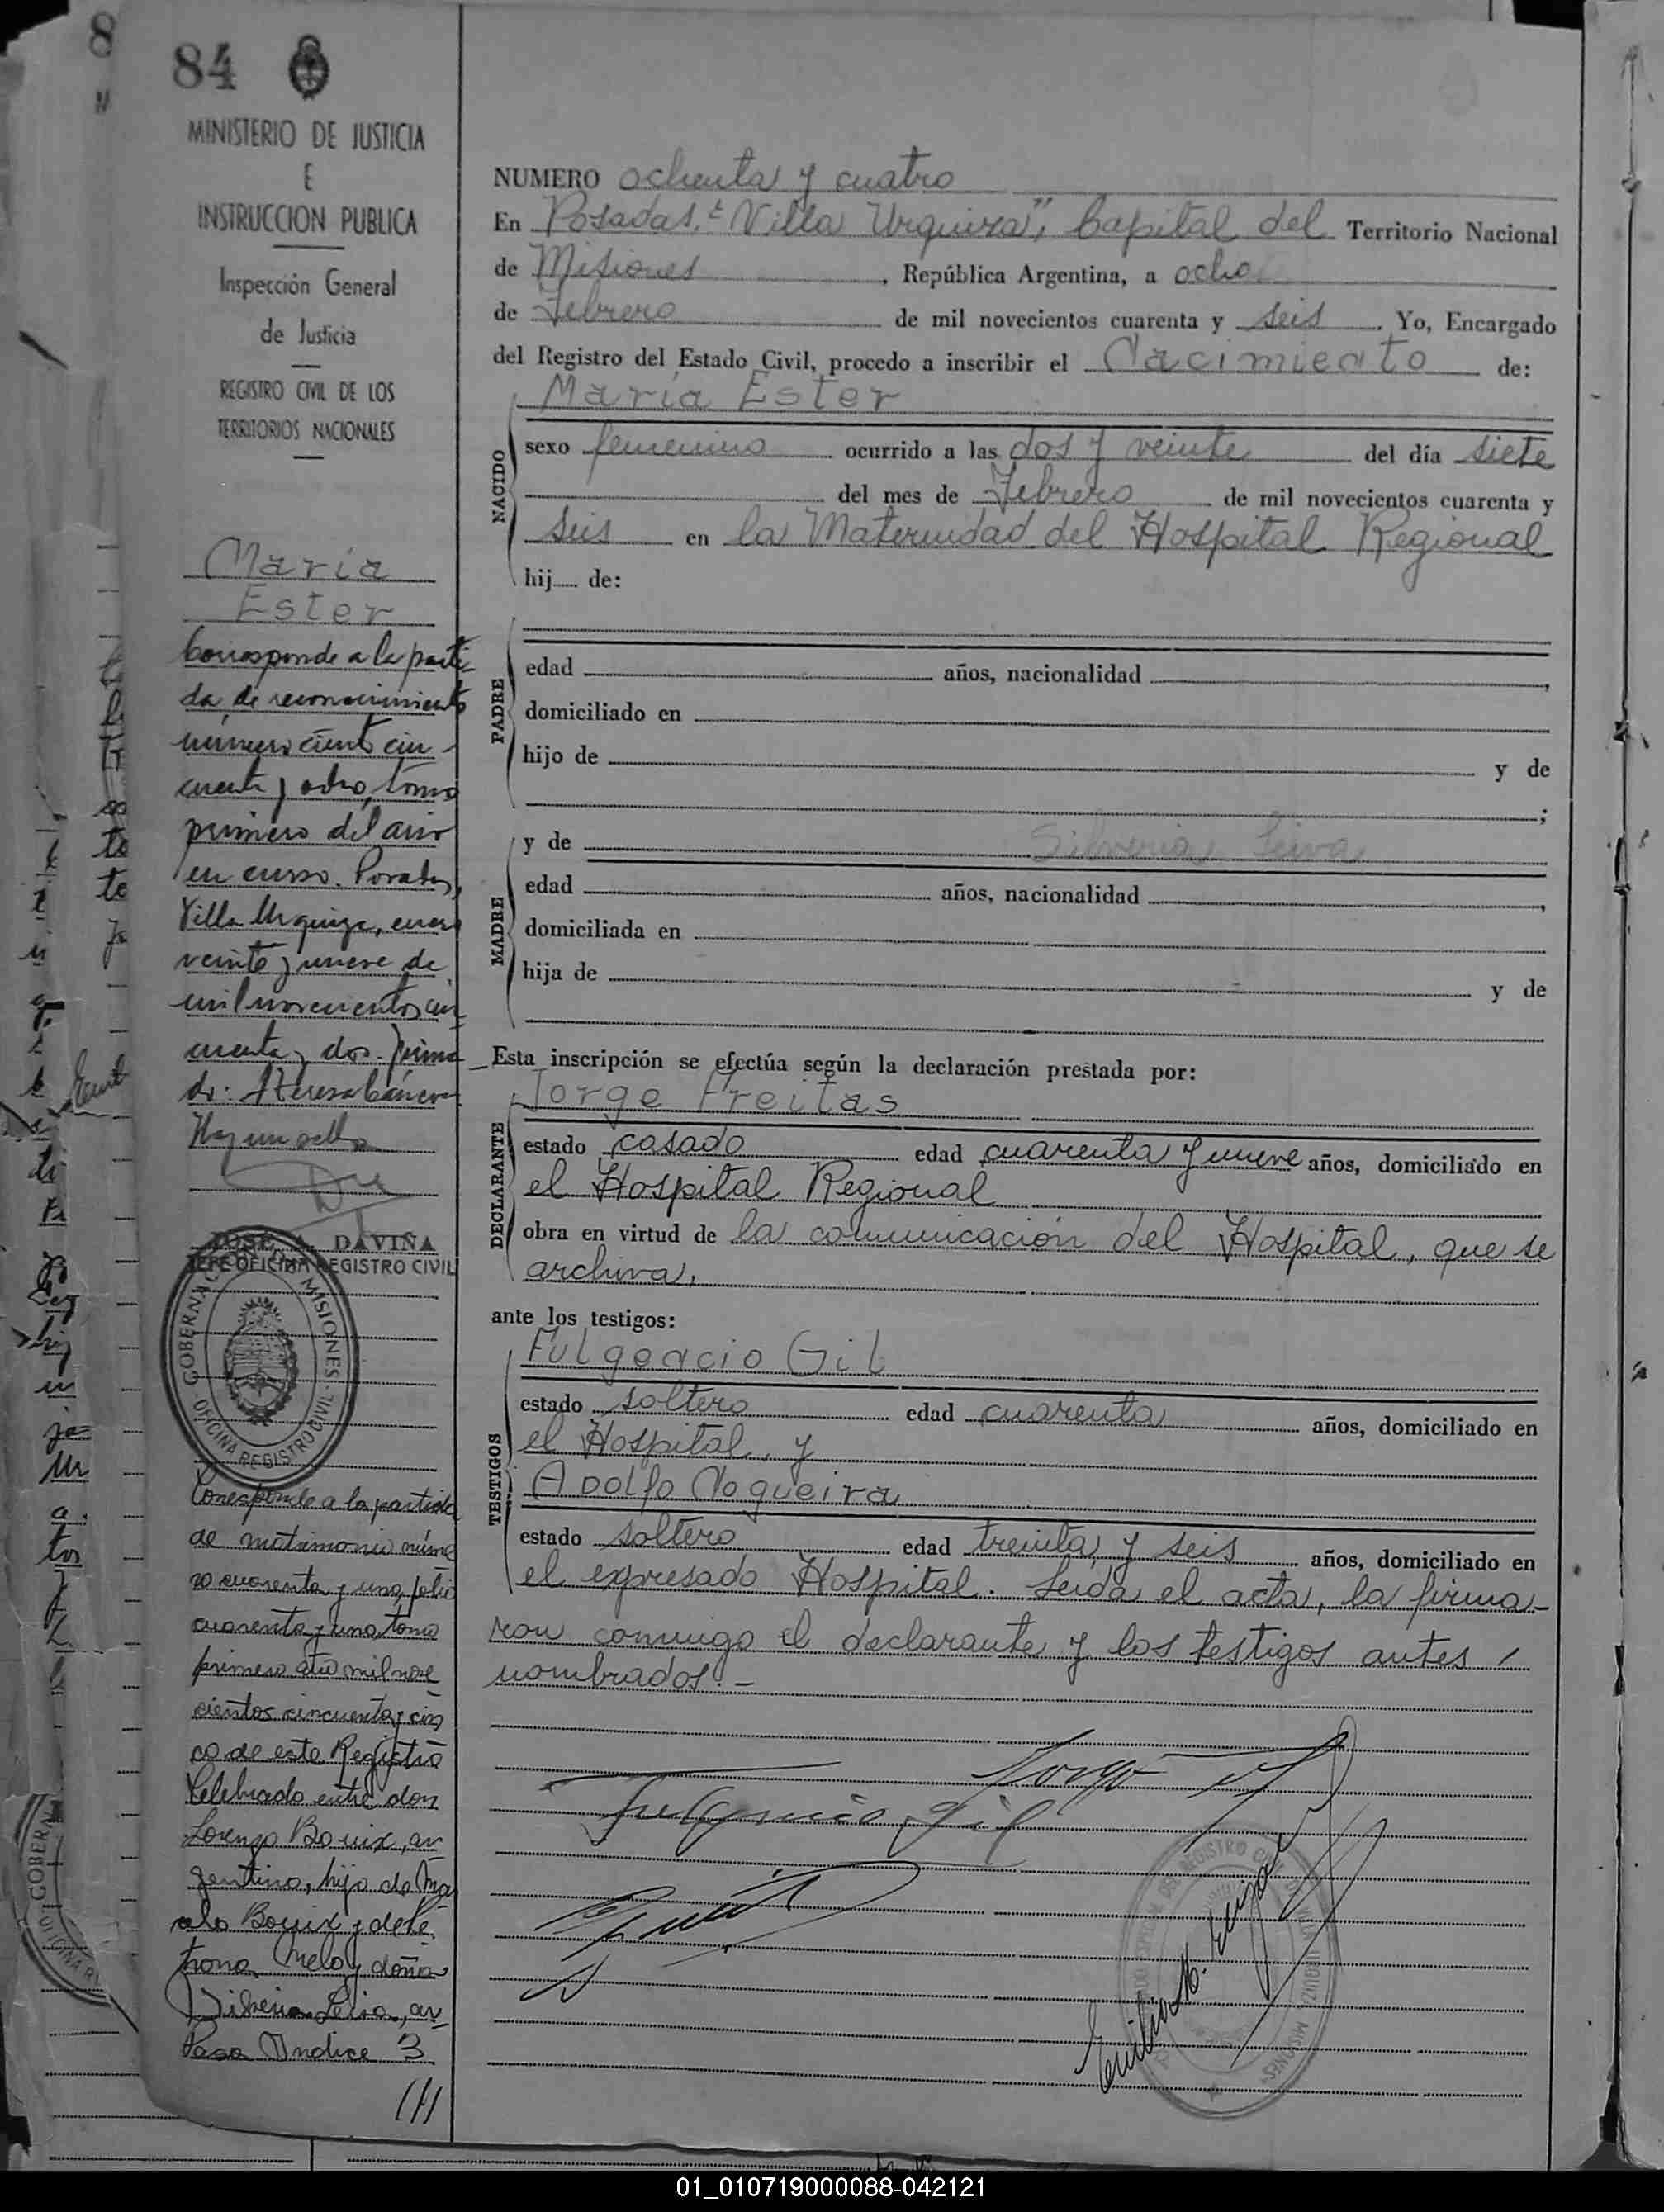 84
MINISTERIO DE JUSTICIA
E
INSTRUCCION PUBLICA
Inspección General
de Justicia
REGISTRO CIVIL DE LOS
TERRITORIOS NACIONALES
María
Ester
Corresponde a la parti-
da de reconocimiento
número ciento cin-
cuenta y ocho, tomo
primero del año
en curso. Posadas,
Villa Urquiza, enero
veinte y nueve de
mil novecientos cin-
cuenta y dos.
JOSE A. DAVIÑA
JEFE OFICINA REGISTRO CIVIL
GOBERNACION MISIONES
OFICINA REGISTRO CIVIL
Corresponde a la partida
de matrimonio núme
ro cuarenta y uno, folio
cuarenta y uno, tomo
primero año mil nove
cientos cincuenta y cin
co de este Registro
Celebrado entre don
Lorenzo Bouix, ar
gentino, hijo de
Bouix y de Pe
trona Melo y doña
Silveria Leiva, ar-
Pasa Indice 3
NUMERO ochenta y cuatro
En Posadas, "Villa Urquiza", Capital del Territorio Nacional
de Misiones, República Argentina, a ocho
de Febrero de mil novecientos cuarenta y seis. Yo, Encargado
del Registro del Estado Civil, procedo a inscribir el Nacimiento de:
María Ester
NACIDO
sexo femenino ocurrido a las dos y veinte del día siete
del mes de Febrero de mil novecientos cuarenta y
seis en la Maternidad del Hospital Regional
hij de:
PADRE
edad años, nacionalidad ,
domiciliado en
hijo de y de
;
MADRE
y de Silveria Leiva
edad años, nacionalidad ,
domiciliada en
hija de y de
Esta inscripción se efectúa según la declaración prestada por:
Jorge Freitas
DECLARANTE
estado casado edad cuarenta y nueve años, domiciliado en
el Hospital Regional
obra en virtud de la comunicación del Hospital, que se
archiva.
ante los testigos:
Fulgencio Gil
TESTIGOS
estado soltero edad cuarenta años, domiciliado en
el Hospital, y
Adolfo Nogueira
estado soltero edad treinta y seis años, domiciliado en
el expresado Hospital. Leída el acta, la firma-
ron conmigo el declarante y los testigos antes
nombrados.-
Fulgencio Gil
01_010719000088-042121